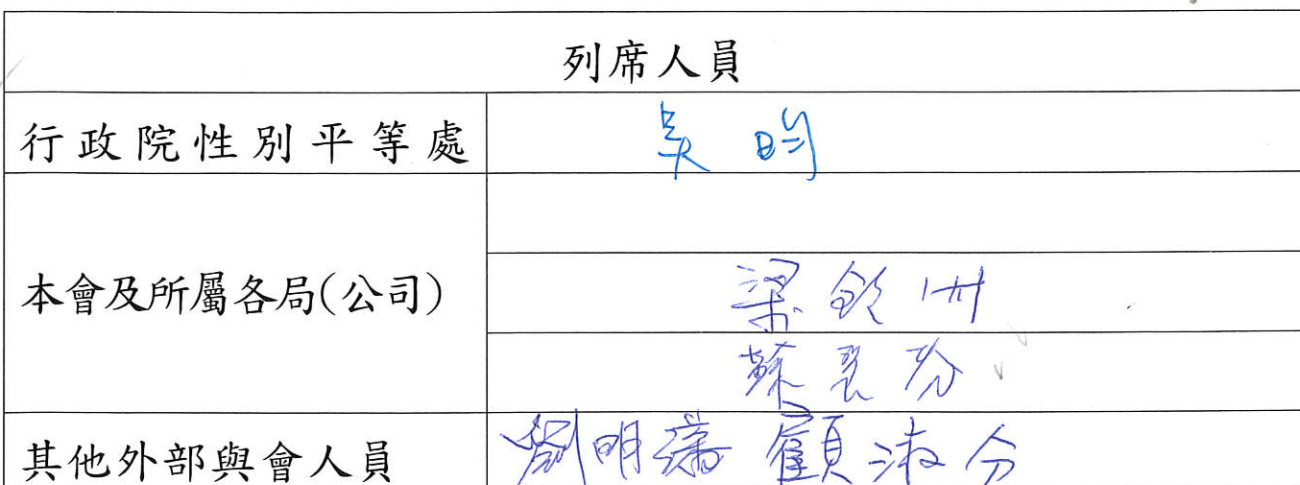 列席人員
行政院性別平等處
吳昀
本會及所屬各局(公司)
梁欽州
蘇
其他外部與會人員
劉明 顧淑分